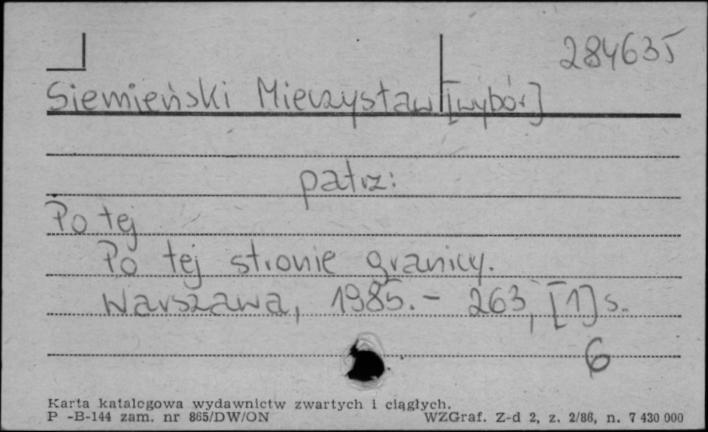 284635
Siemieński Mieczysław [wybór]
patrz:
Po tej
Po tej stronie granicy.
Warszawa, 1985. - 263, [1] s.
6
Karta katalogowa wydawnictw zwartych i ciągłych.
P -B-144 zam. nr 865/DW/ON
WZGraf. Z-d 2, z. 2/86, n. 7 430 000